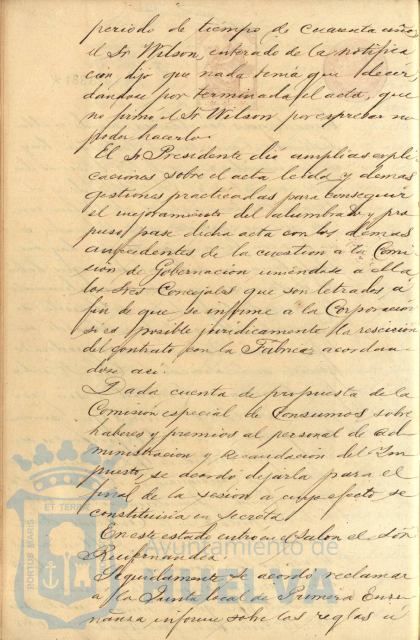 periodo de tiempo de cuarenta años
el Sr Wilson, enterado de la notifica
ción dijo que nada tenia que decir
dandose por terminada el acta, que
no firmó el Sr Wilson por expresar no
poder hacerlo.
El Sr Presidente dió amplias expli
caciones sobre el acta leida y demas
gestiones practicadas para conseguir
el mejoramiento del alumbrado y pro
puso, pase dicha acta con los demas
antecedentes de la cuestion a la Comi
sión de Gobernacion uniendose a ella
los tres Concejales que son letrados, a
fin de que se informe a la Corporacion
si es posible juridicamente la rescisión
del contrato con la Fabrica, acordan
dose asi.
Dada cuenta de propuesta de la
Comisión especial de Consumos sobre
haberes y premios al personal de Ad
ministracion y Recaudación del Im
puesto, se acordó dejarla para el
final de la sesión a cuyo efecto se
constituiria en secreta
En este estado entró en el Salon el Señor
Ayuntamiento de
HUELVA
PORTUS MARIS
ET TERRAE
Seguidamente se acordó reclamar
a la Junta local de Primera Ense
ñanza informe sobre las reglas a